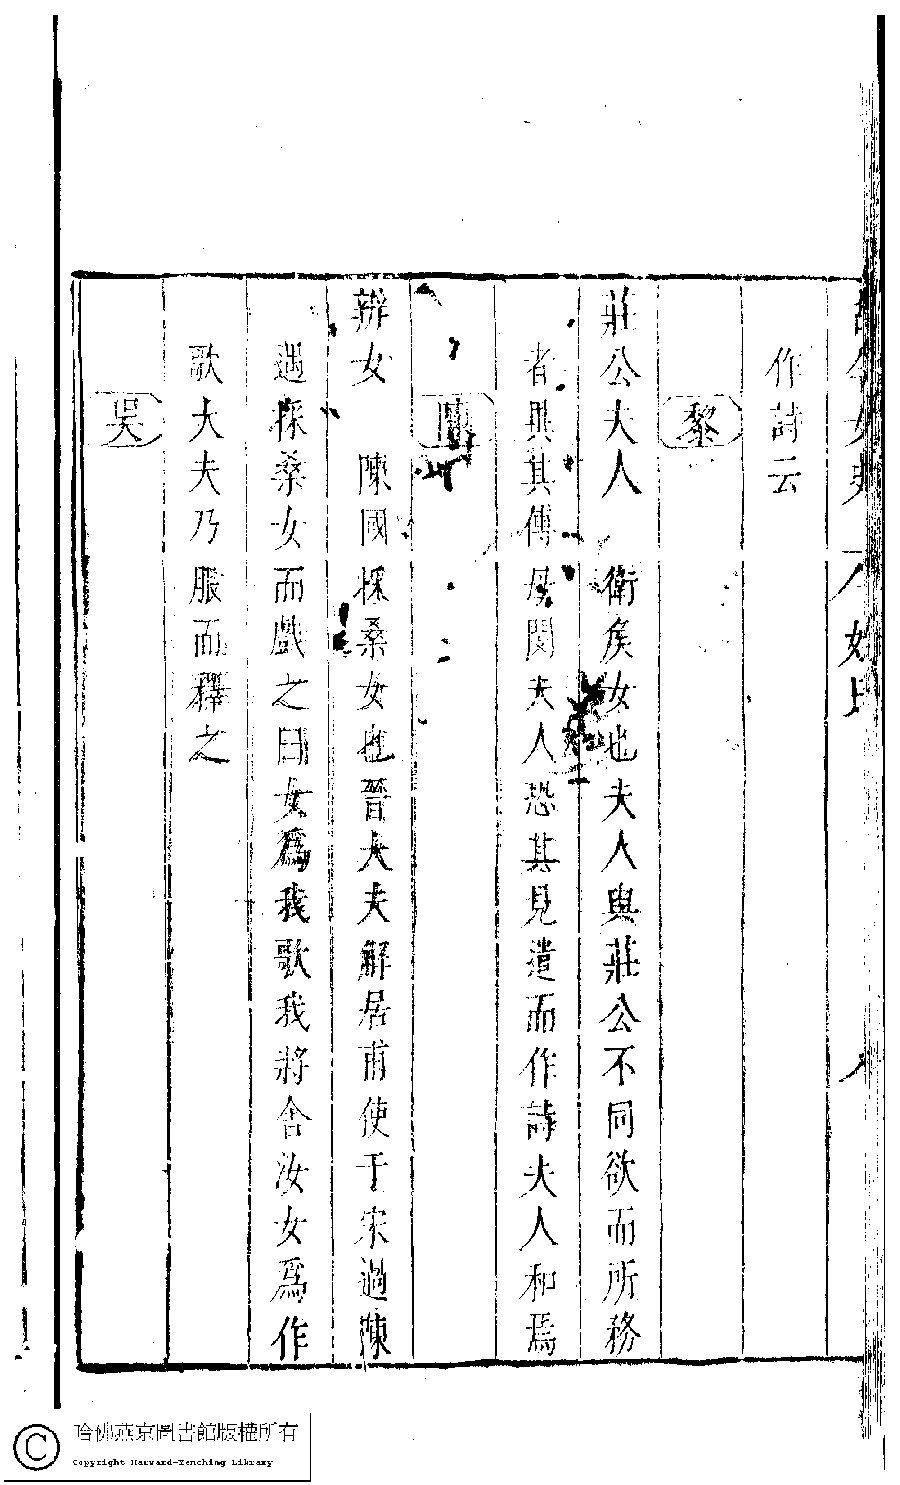 作詩云
黎
莊公夫人　衛矦女也夫人與莊公不同欲而所務
者異其傅母閔夫人恐其見遣而作詩夫人和焉
陳
辯女　陳國採桑女也晉大夫解居甫使于宋過陳
遇採桑女而戲之曰女為我歌我將舍汝女爲作
歌大夫乃服而釋之
吳
哈佛燕京圖書館版權所有
Copyright Harvard-Yenching Library